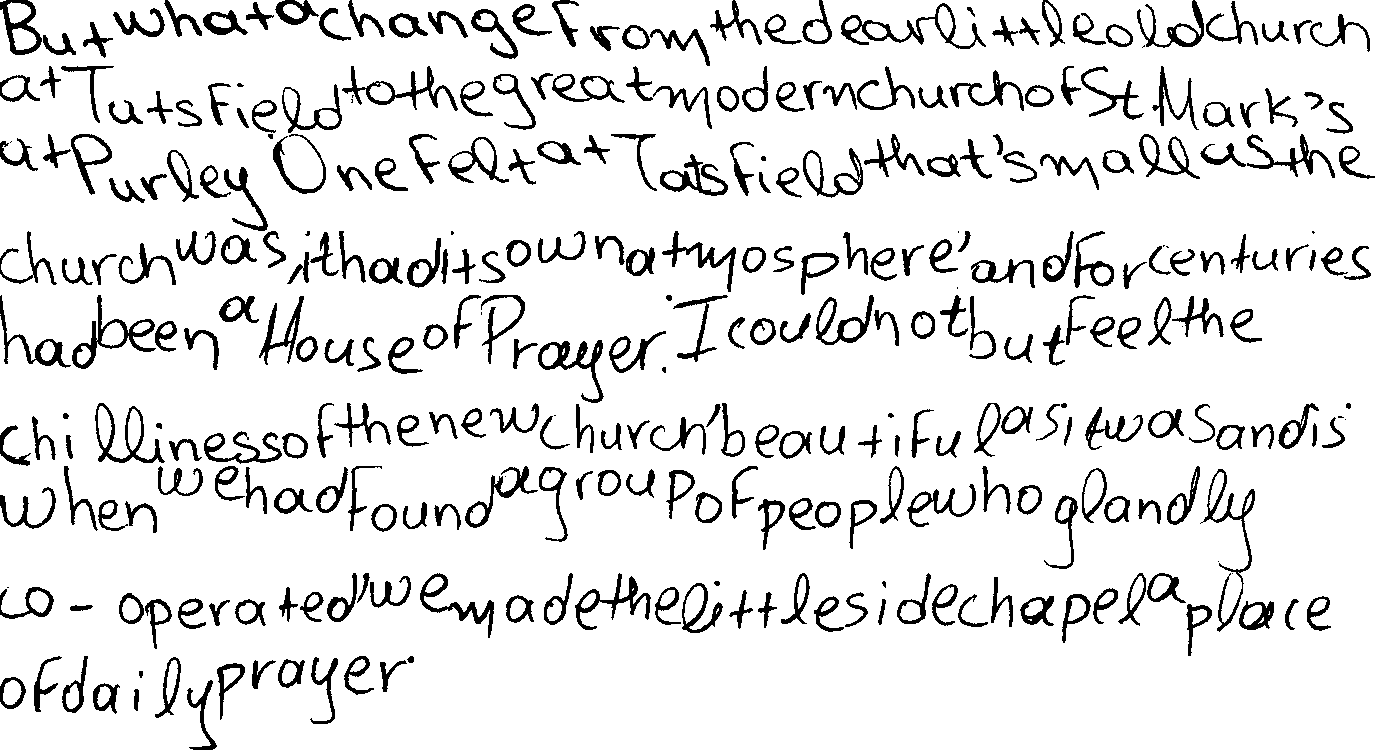 But what a change from the dear little old church
at Tatsfield to the great modern church of St. Mark's
at Purley One felt at Tatsfield that's mall as the
church was, it had its own atmosphere, and for centuries
had been a House of Prayer. I could not but feel the
chilliness of the new church, beautiful as it was and is
when we had found a group of people who glandly
co-operated, we made the little side chapel a place
of daily prayer.